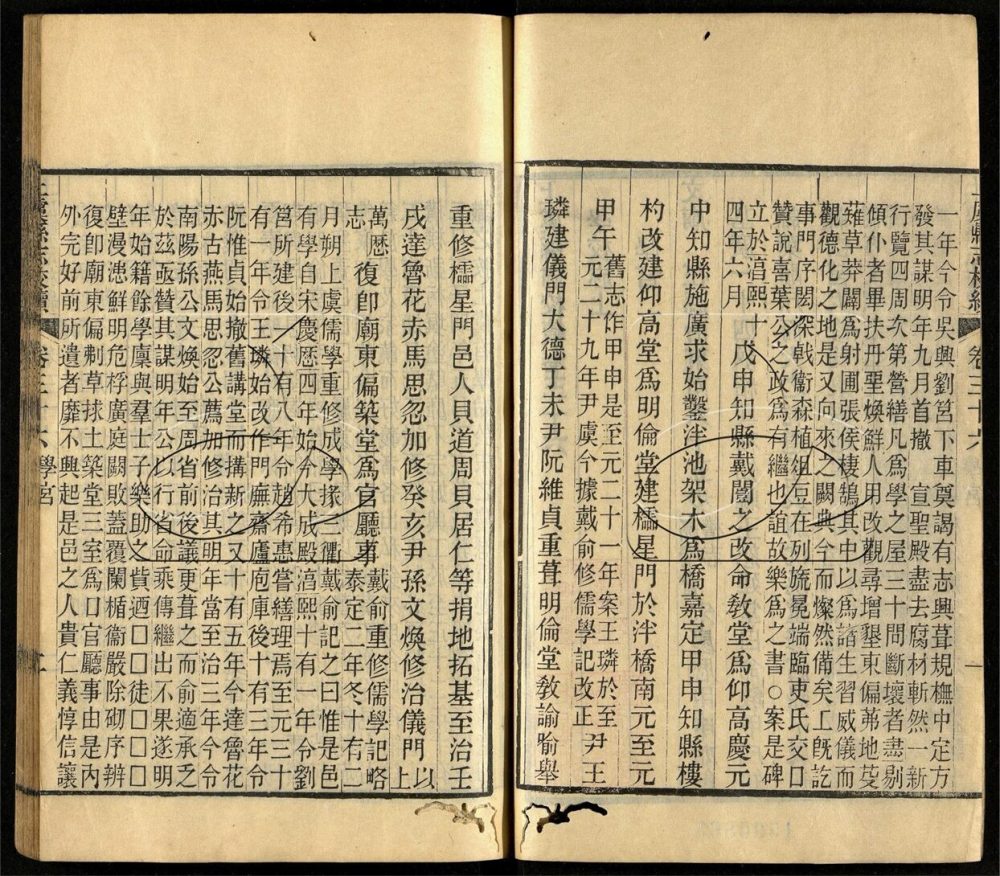 上虞縣志校續 卷三十六
一年今令吳興劉筥下車奠謁有志興葺規橅中定方
發其謀明年九月首撤 宣聖殿盡去腐材斬然一新
行覽四周次第營繕凡爲學之屋三十間斷壞者盡剔
傾仆者畢扶丹堊煥鮮人用改觀尋增墾東偏苐地埈
薙草莽闢爲射圃張侯棲鵠其中以爲諸生習威儀而
觀德化之地是又向來之闕典今而燦然備矣工旣訖
事門序閎深戟衞森植俎豆在列旒冕端臨吏民交口
贊說喜葉公之政爲有繼也誼故樂爲之書○案是碑
立於淳熙十
四年六月 戊申知縣戴闓之改命敎堂爲仰高慶元
中知縣施廣求始鑿泮池架木爲橋嘉定甲申知縣樓
杓改建仰高堂爲明倫堂建櫺星門於泮橋南元至元
甲午 舊志作甲申是至元二十一年案王璘於至
元二十九年尹虞今據戴俞修儒學記改正 尹王
璘建儀門大德丁未尹阮維貞重葺明倫堂敎諭喻舉
重修櫺星門邑人貝道周貝居仁等捐地拓基至治壬
戌達魯花赤馬思忽加修癸亥尹孫文煥修治儀門 以上
萬歷
志 復卽廟東偏築堂爲官廳事 戴俞重修儒學記略
泰定二年冬十有二
月朔上虞儒學重修成學掾三衢戴俞記之曰惟是邑
有學自宋慶歷四年始今大成殿淳熙十有一年令劉
筥所建後一十有八年令趙希惠嘗繕理焉至元三十
有一年令王璘始改作門廡齋廬庖庫後十有三年令
阮惟貞始撤舊講堂而搆新之又十有五年今達魯花
赤古燕馬思忽公薦加修治其明年當至治三年今令
南陽孫公文煥始至周省前後議更葺之而俞適承乏
於茲亟贊其謀明年公以行省命乘傳繼出不果遂明
年始籍餘學廩與羣士子樂助之貲迺□□徒□□□
壁漫漶鮮明危桴廣庭闕敗蓋覆闌楯衞嚴除砌序辨
復卽廟東偏剃草捄土築堂三室爲口官廳事由是內
外完好前所遺者靡不興起是邑之人貴仁義惇信讓
上虞縣志校續 卷三十六 學宮